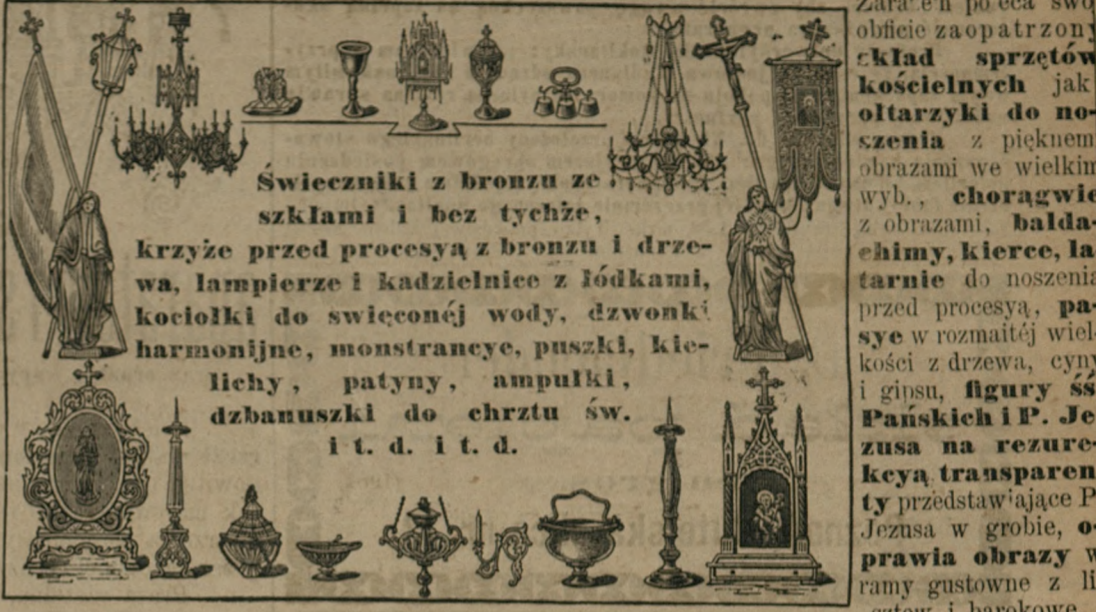 Świeczniki z bronzu ze
szkłami i bez tychże,
krzyże przed procesyą z bronzu i drze-
wa, lampierze i kadzielnice z łódkami,
kociołki do swięconéj wody, dzwonki
harmonijne, monstrancye, puszki, kie-
lichy, patyny, ampułki,
dzbanuszki do chrztu św.
i t. d. i t. d.
obficie zaopatrzony
skład sprzętów
kościelnych jak
ołtarzyki do no-
szenia z pięknemi
obrazami we wielkim
wyb., chorągwie
z obrazami, balda-
chimy, kierce, la-
tarnie do noszenia
przed procesyą, pa-
sye w rozmaitéj wiel-
kości z drzewa, cyny
i gipsu, figury śś.
Pańskich i P. Je-
zusa na rezure-
kcyą transparen-
ty przedstawiające P.
Jezusa w grobie, o-
prawia obrazy w
ramy gustowne z li-